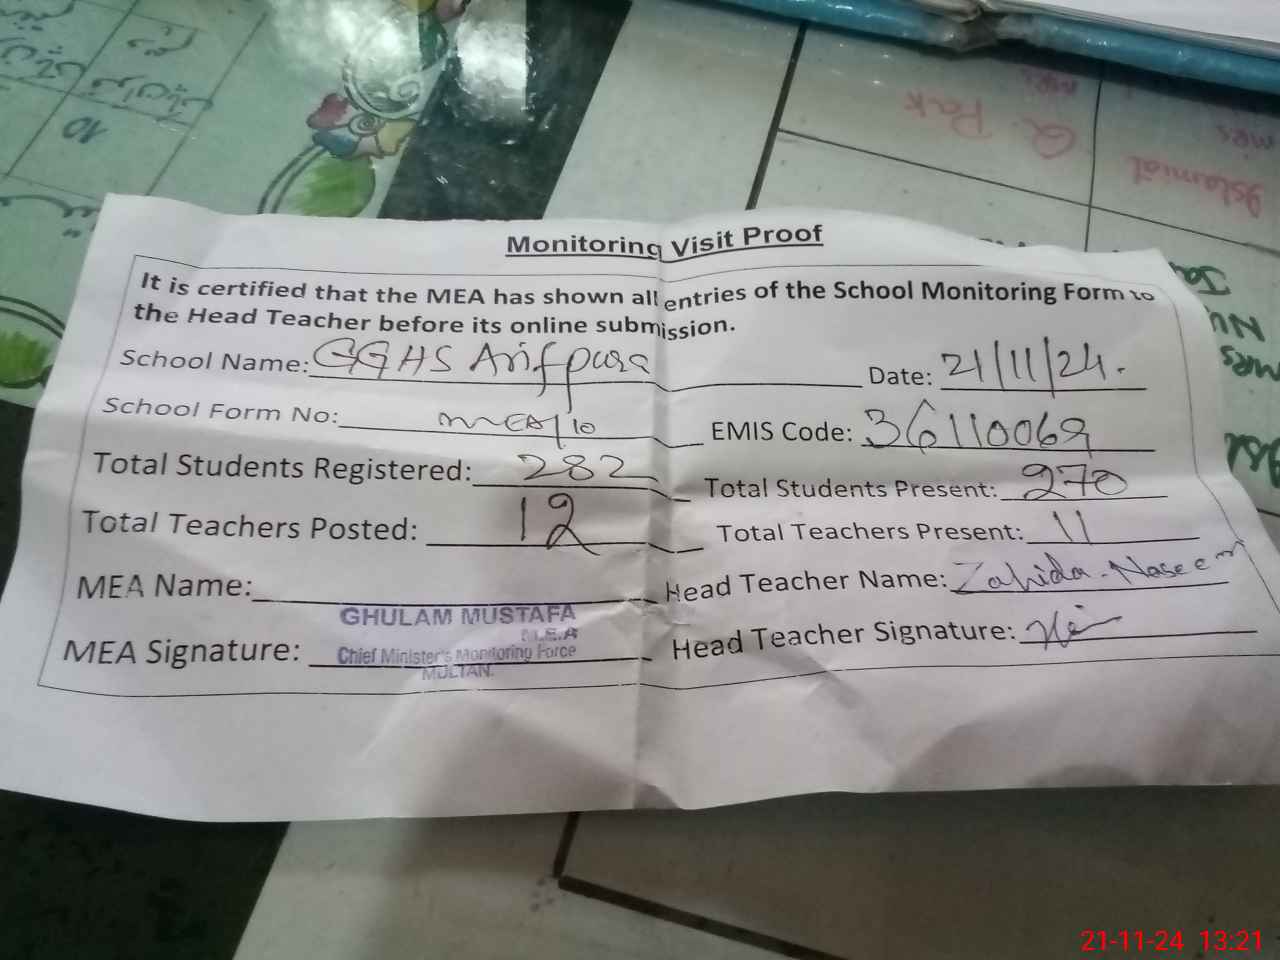 10
Q. Pak
Islamiat
Monitoring Visit Proof
It is certified that the MEA has shown all entries of the School Monitoring Form to
the Head Teacher before its online submission.
School Name: GGHS Arifpura Date: 21/11/24.
School Form No: MEA/10 EMIS Code: 36110069
Total Students Registered: 282 Total Students Present: 270
Total Teachers Posted: 12 Total Teachers Present: 11
MEA Name: Head Teacher Name: Zahida Naseem
GHULAM MUSTAFA
M.E.A
MEA Signature: Chief Minister's Monitoring Force Head Teacher Signature:
MULTAN.
21-11-24 13:21